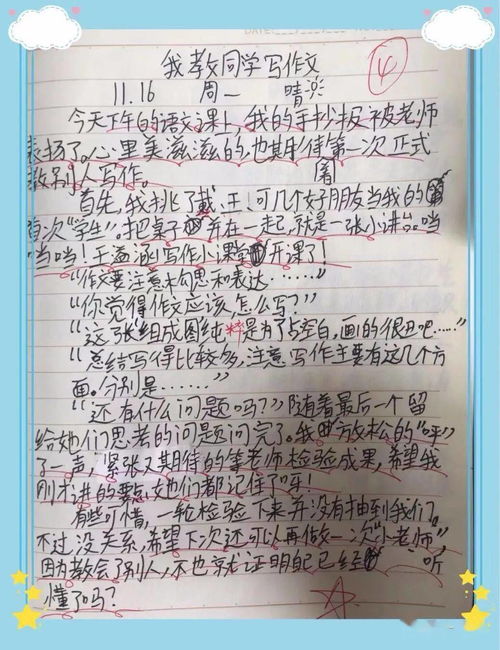 我教同学写作文
④
11.16 周一 晴
今天下午的语文课上,我的手抄报被老师
表扬了。心里美滋滋的,也期待第一次正式
教别人写作。
首先,我挑了戴、王、可几个好朋友当我的
首次“学生”,把桌子并在一起,就是一张小讲台。当
当当!王溢涵写作小课堂开课了!
“作文要注意构思和表达……”
“你觉得作文应该怎么写?”
“这张组成图纯粹是为了占空白,画的很丑吧……”
“总结写得比较多,注意写作主要有这几个方
面。分别是……”
“还有什么问题吗?”随着最后一个留
给她们思考的问题问完了。我放松的“呼”
了一声,紧张又期待的等老师检验成果,希望我
刚才讲的要点她们都记住了呀!
有些可惜,一轮检验下来并没有抽到我们。
不过没关系,希望下次还可以再做一次“小老师”,
因为教会了别人,不也就证明自己已经听
懂了吗?